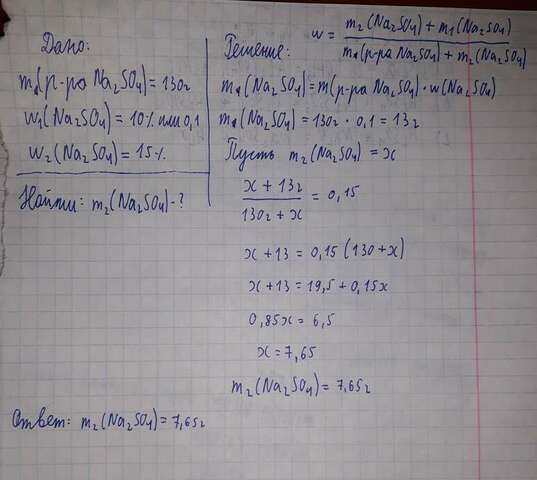 Дано:
m₁(р-ра Na₂SO₄) = 130г
w₁(Na₂SO₄) = 10% или 0,1
w₂(Na₂SO₄) = 15%
Найти: m₂(Na₂SO₄) - ?
Решение:
w = m₂(Na₂SO₄) + m₁(Na₂SO₄) / m₁(р-ра Na₂SO₄) + m₂(Na₂SO₄)
m₁(Na₂SO₄) = m(р-ра Na₂SO₄) · w(Na₂SO₄)
m₁(Na₂SO₄) = 130г · 0,1 = 13г
Пусть m₂(Na₂SO₄) = x
x + 13г / 130г + x = 0,15
x + 13 = 0,15 (130 + x)
x + 13 = 19,5 + 0,15x
0,85x = 6,5
x = 7,65
m₂(Na₂SO₄) = 7,65г
Ответ: m₂(Na₂SO₄) = 7,65г